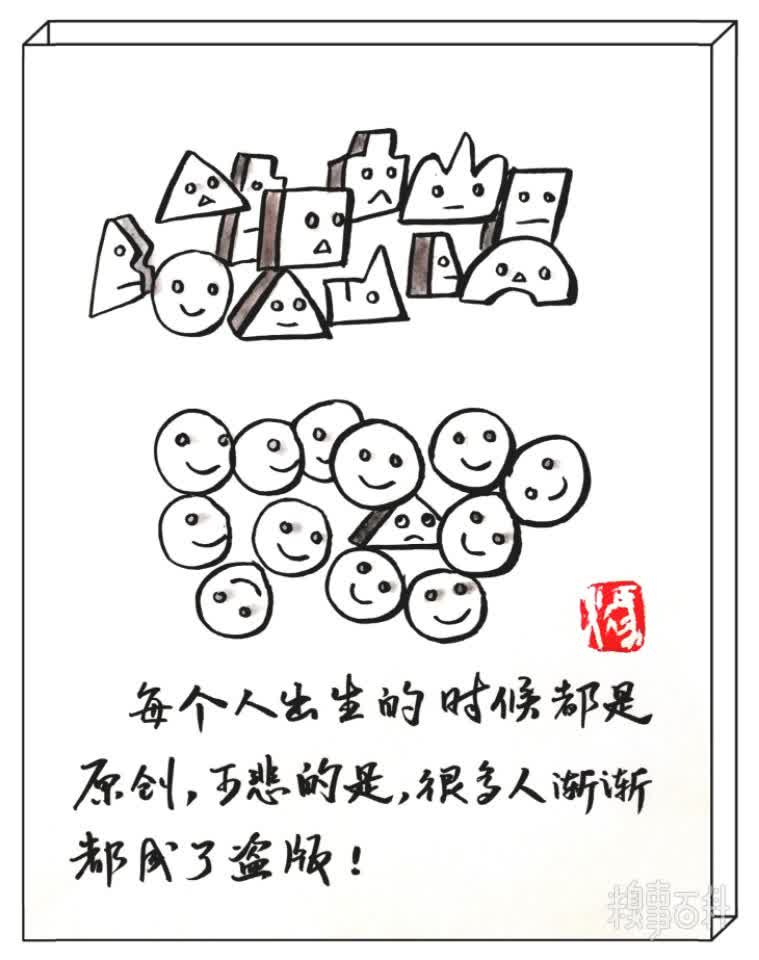 每个人出生的时候都是
原创，可悲的是，很多人渐渐
都成了盗版！
糗事百科